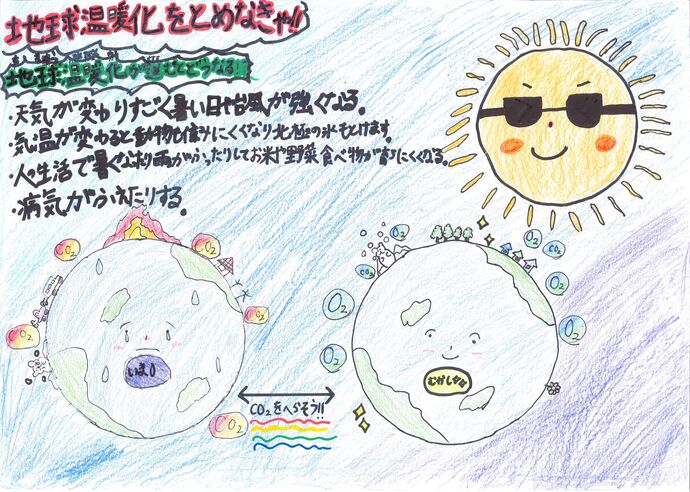 地球温暖化をとめなきゃ!!
地球温暖化が進むとどうなる!?
・天気が変わりすごく暑い日や台風が強くなる。
・気温が変わると動物も住みにくくなり北極の氷もとけます。
・人の生活で暑くなったり雨がふったりしてお米や野菜食べ物が育ちにくくなる。
・病気がふえたりする。
CO₂
CO₂
CO₂
CO₂
CO₂
CO₂
いまの
CO₂をへらそう!!
O₂
CO₂
O₂
O₂
CO₂
O₂
O₂
O₂
むかしかな